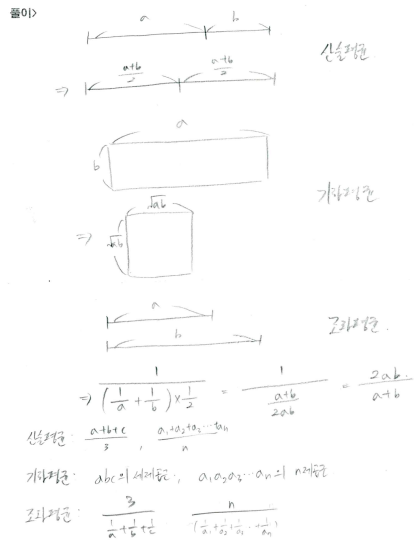 풀이>
a b
산술평균
⇒ (a+b)/2 (a+b)/2
a
b
기하평균
√ab
⇒ √ab
a
조화평균
b
⇒ 1/((1/a + 1/b) × 1/2) = 1/((a+b)/2ab) = 2ab/(a+b)
산술평균: (a+b+c)/3 , (a₁+a₂+a₃…aₙ)/n
기하평균: abc의 세제곱근, a₁a₂a₃…aₙ의 n제곱근
조화평균: 3/(1/a+1/b+1/c) n/(1/a₁+1/a₂+1/a₃…+1/aₙ)